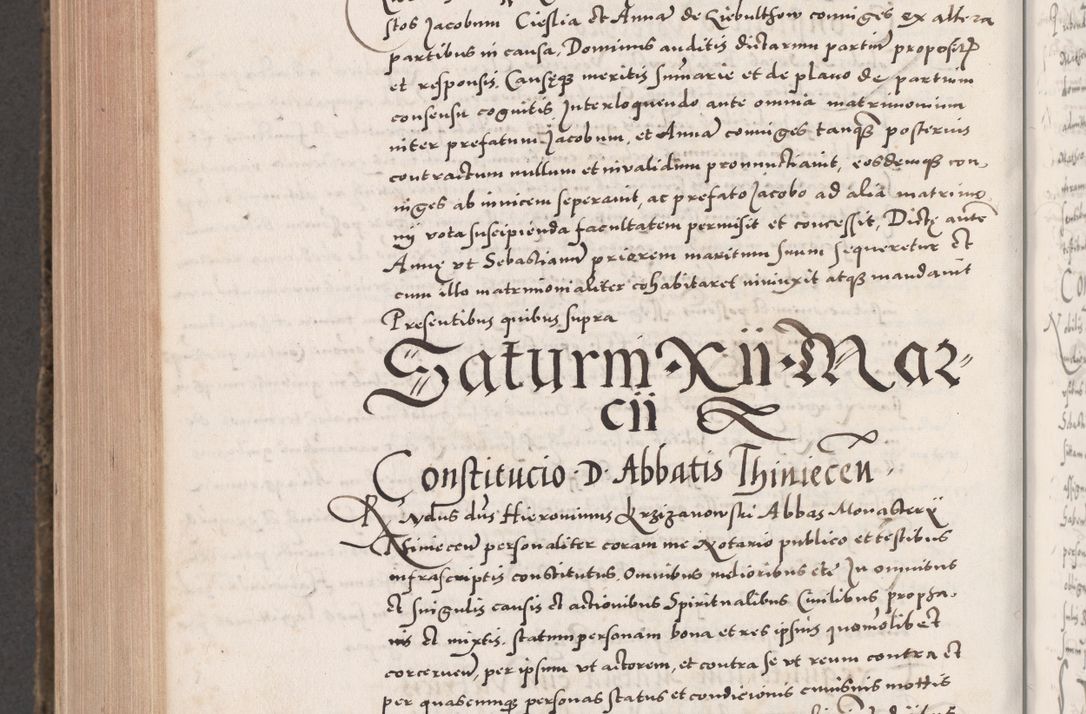 stos Jacobum Cieslia et Annā de Liebulthow coniuges ex altera
partibus in causa, Dominus auditis dictarum partiū propositis
et responsis, Causęq̄ meritis sum̄arie et de plano de partium
consensu cognitis, Interloquendo ante omnia matrimonium
inter prefatum Jacobum, et Annā coniuges tanq̄ posterius
contractum nullum et invalidum pronunctiavit, eosdemq̄ con
iuges ab invicem seperavit, ac prefato Jacobo ad alia matrimo
nij vota suscipienda facultatem permisit et concessit, Dictę autē
Annę ut Sebastianū priorem maritum suum sequeretur et
cum illo matrimonialiter cohabitaret iniunxit atq̄ mandavit
Presentibus quibus supra
Saturni · Xii · Mar
cii
Constitucio · D · Abbatis Thiniecen̄ ·
Rn̄dus dn̄s Hieronimus Krzizanowski Abbas Monasterij
Thiniecen̄ personaliter coram me Notario publico et testibus
infrascriptis constitutus, Omnibus melioribus etc̄ In omnibus
et singulis causis et actionibus Spiritualibus Civilibus propha
nis et mixtis, statum personam bona et res ipsius quomolibet
concernen̄, per ipsum ut actorem, et contra se ut reum contra et
per quascunq̄ personas status et condicionis cuiusvis mottis